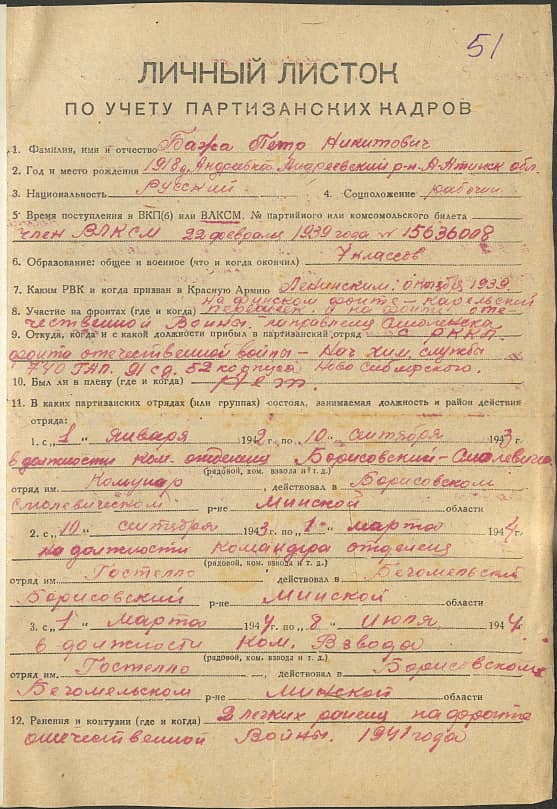 51
ЛИЧНЫЙ ЛИСТОК
ПО УЧЕТУ ПАРТИЗАНСКИХ КАДРОВ
1. Фамилия, имя и отчество Бажа Петр Никитович
2. Год и место рождения 1918 г. Андреевка Андреевский р-н А-Атинск обл.
3. Национальность Русский 4. Соцположение рабочий
5. Время поступления в ВКП(б) или ВЛКСМ, № партийного или комсомольского билета
член ВЛКСМ 22 февраля 1939 года № 15636008
6. Образование: общее и военное (что и когда окончил) 7 классов
7. Каким РВК и когда призван в Красную Армию Ленинским: октябрь 1939
8. Участие на фронтах (где и когда) на финском фронте - Карельский перешеек, и на фронте оте-
чественной Войны. направления Смоленска
9. Откуда, когда и с какой должности прибыл в партизанский отряд с РККА
фронта отечественной войны - Нач хим. службы
740 ГАП. 91 сд. 52 корпуса Ново Сибирского.
10. Был ли в плену (где и когда) Нет.
11. В каких партизанских отрядах (или группах) состоял, занимаемая должность и район действия
отряда:
1. с „1“ января 1942 г. по „10“ сентября 1943 г.
в должности Ком. отделения Борисовский-Смолевичск
(рядовой, ком. взвода и т. д.)
отряд им. Комунар, действовал в Борисовском
Смолевическом Минской области
2. с „10“ сентября 1943 г. по „1“ марта 1944 г.
на должности Командира отделения
(рядовой, ком. взвода и т. д.)
отряд им. Гостелло действовал в Бегомельский
Борисовский р-не Минской области
3. с „1“ марта 1944 г. по „8“ Июля 1944 г.
в должности Ком. Взвода
(рядовой, ком. взвода и т. д.)
отряд им. Гостелло, действовал в Борисовском
Бегомельском р-не Минской области
12. Ранения и контузии (где и когда) 2 легких ранения на фронте
отечественной Войны. 1941 года